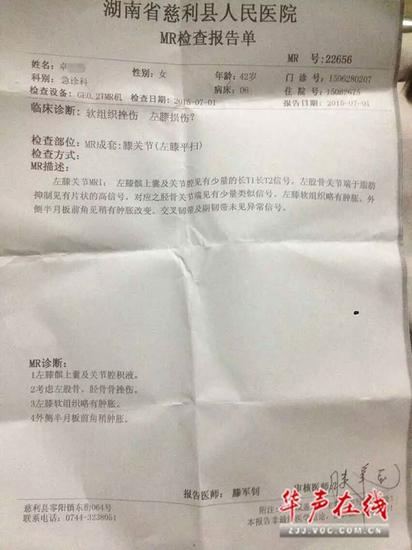 湖南省慈利县人民医院
MR检查报告单
MR 号:22656
姓名:卓
性别:女
年龄:42岁
门诊号:1506280207
科别:急诊科
病床:06
住院号:15082675
检查设备:GE0.2TMR机
检查日期:2015-07-01
报告日期:2015-07-01
临床诊断:软组织挫伤 左膝损伤?
检查部位:MR成套:膝关节(左膝平扫)
检查方式:
MR描述:
左膝关节MRI:左膝髌上囊及关节腔见有少量的长T1长T2信号。左股骨关节端于脂肪
抑制见有片状的高信号，对应之胫骨关节端见有少量类似信号。左膝软组织略有肿胀，外
侧半月板前角见稍有肿胀改变。交叉韧带及副韧带未见异常信号。
MR诊断:
1左膝髌上囊及关节腔积液。
2考虑左股骨、胫骨骨挫伤。
3左膝软组织略有肿胀。
4外侧半月板前角稍肿胀。
报告医师:滕军钊
审核医师:
慈利县零阳镇东街064号
联系电话:0744-3238051
附注:
本报告
华声在线
ZJJ.VOC.COM.CN